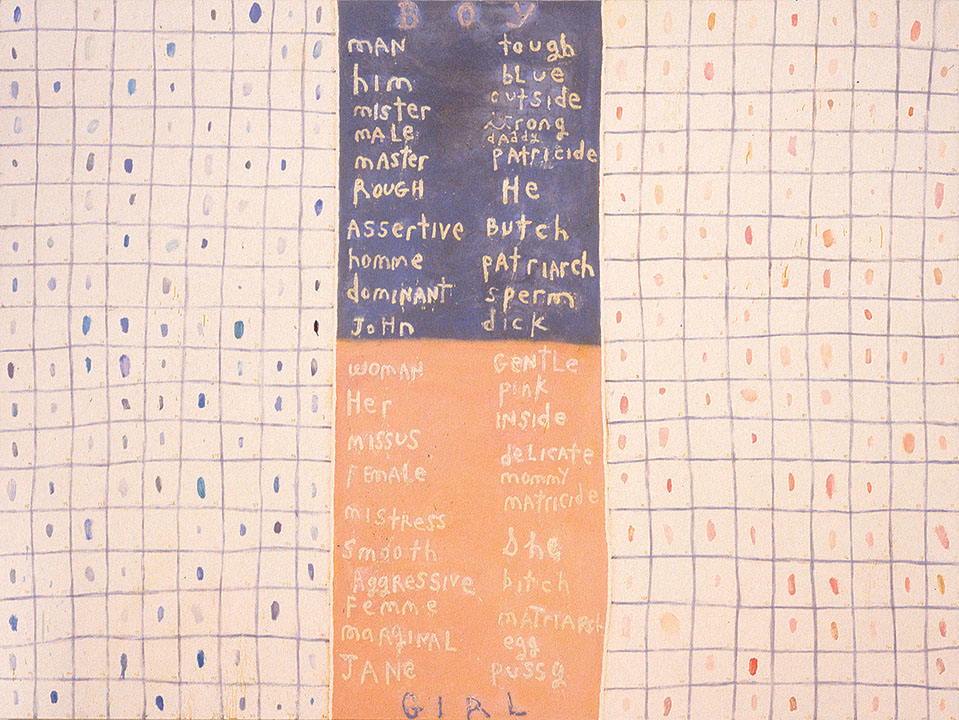 BOY
MAN
him
mister
MALE
mASter
ROUGH
ASSertIVe
homme
domINANT
JoHn
tough
bLue
outside
dAddy
PAtricide
He
Butch
pAtrIARch
sperm
dick
WOMAN
Her
MISSUS
FEMALe
mIStRESS
Smooth
AggRESSIVe
Femme
maRgINAL
JANe
GeNtLe
pINk
INSIde
deLICAte
mommy
mAtRICIde
She
bitch
mATrIARch
egg
pussy
GIRL